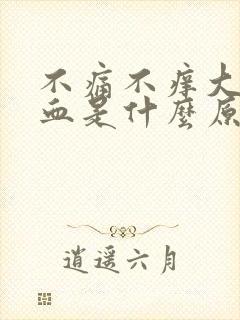 不痛不痒大
血是什麽原
逍遥六月